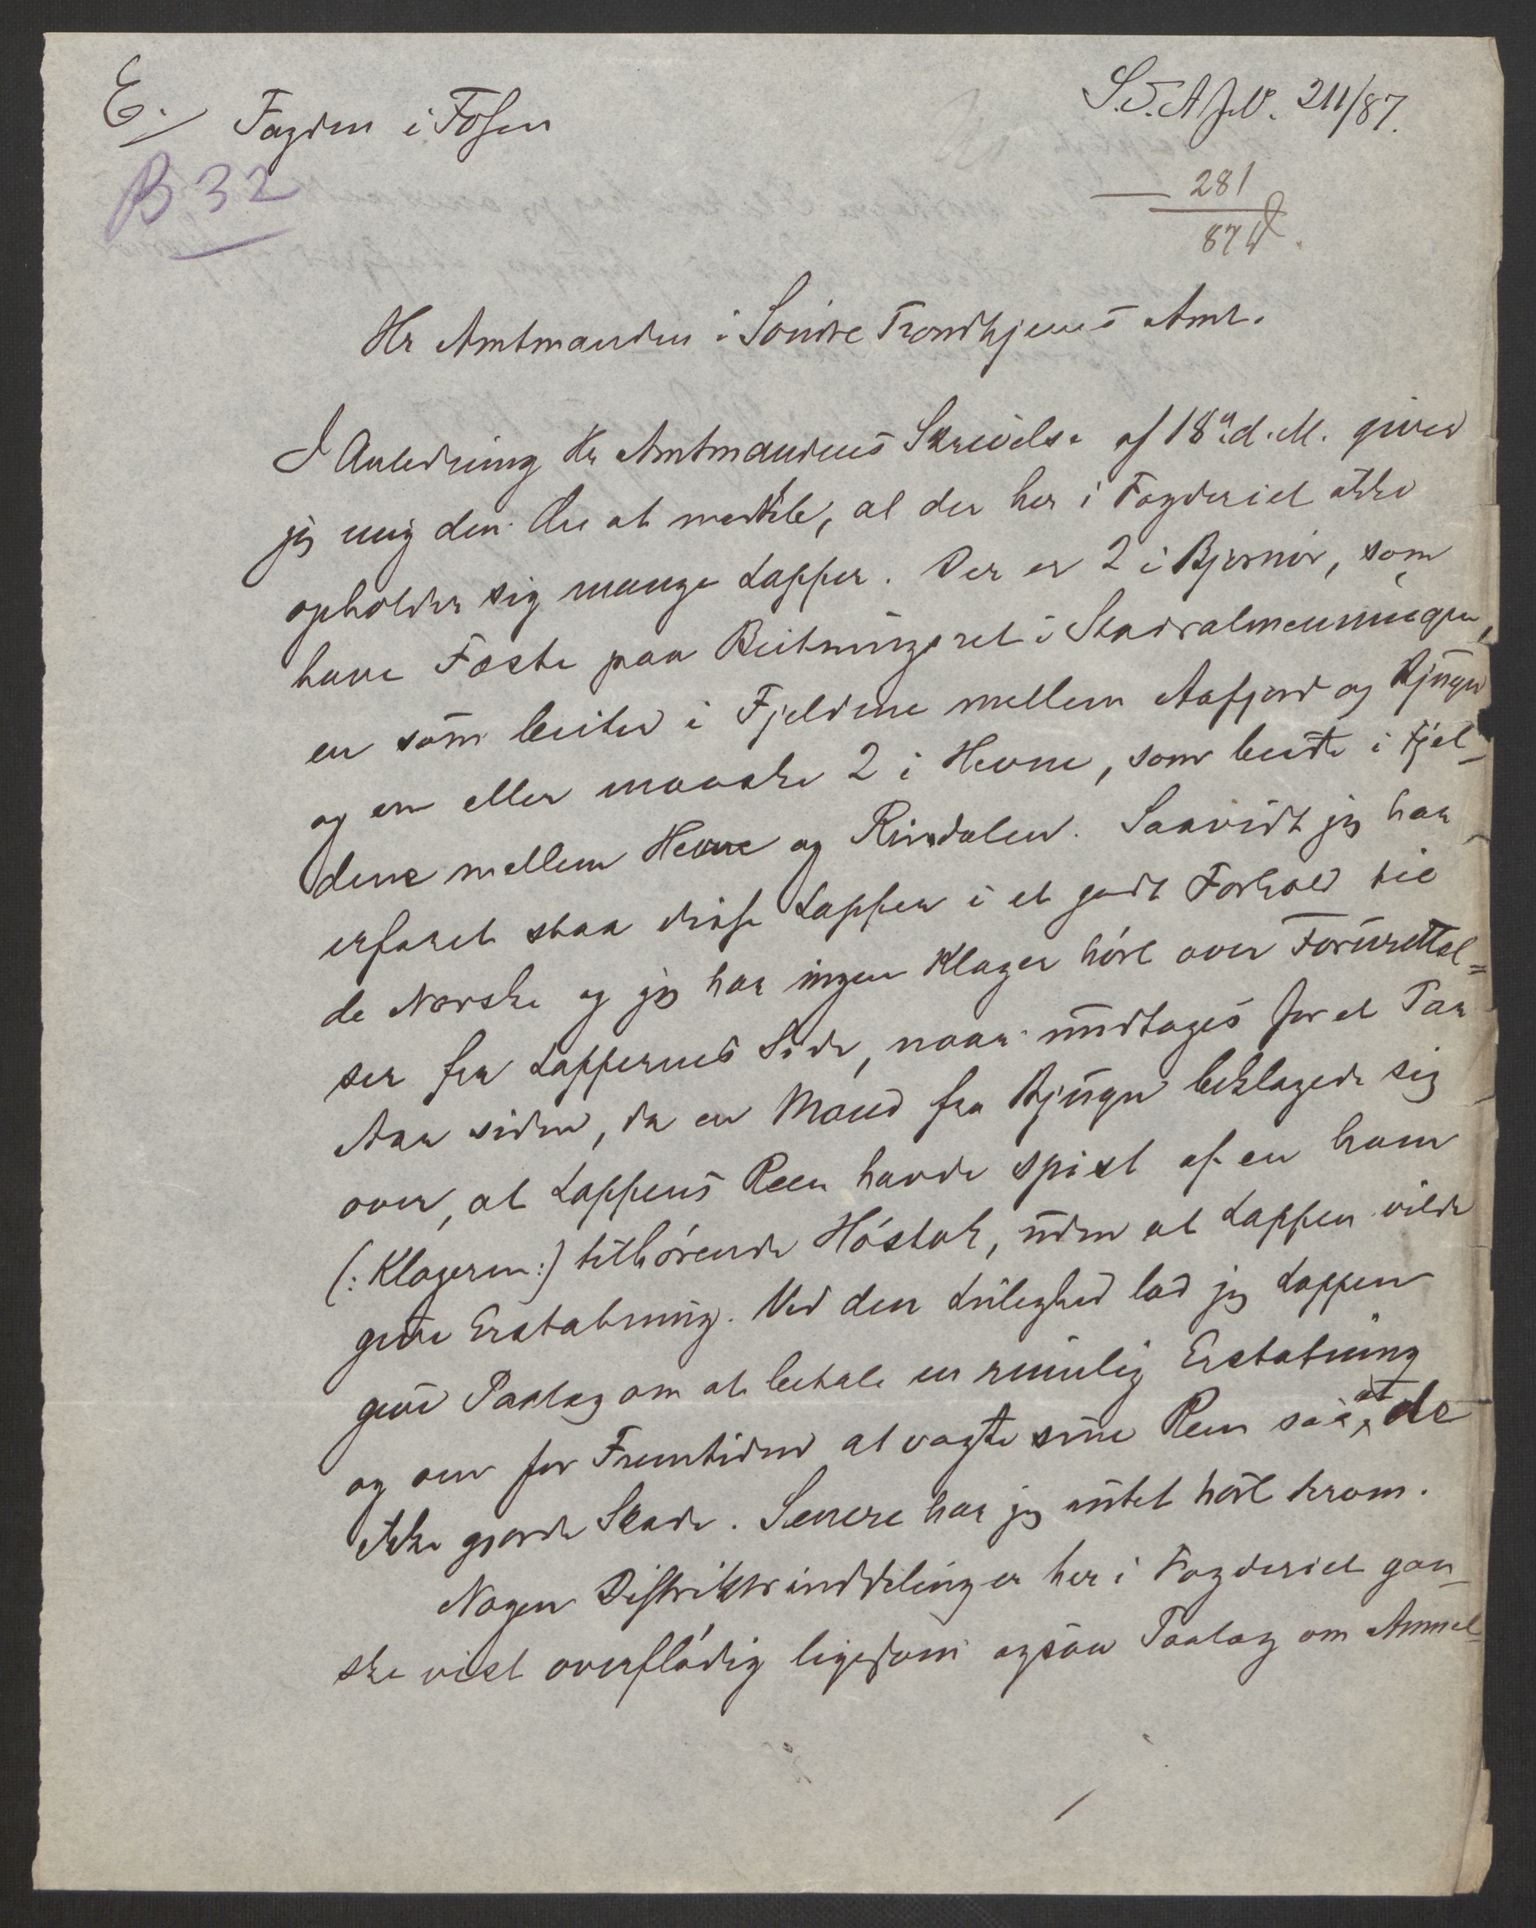 E.
Fogden i Fosen
B 32
S. T. A. J. N. 211/87.
281
87
Hr Amtmanden i Söndre Trondhjems Amt.
I Anledning Hr Amtmandens Skrivelse af 18de d. M. giver
jeg mig den Ære at meddele, at der her i Fogderiet ikke
opholder sig mange Lapper. Der er 2 i Bjørnör, som
have Fæste paa Beitningsret i Stadsalmenningen,
en som beiter i Fjeldene mellem Aafjord og Bjugn
og en eller maaske 2 i Hevne, som beite i Fjel-
dene mellem Hevne og Rindalen. Saavidt jeg har
erfaret staa disse Lapper i et godt Forhold til
de Norske og jeg har ingen Klager hört over Forurettel-
ser fra Lappernes Side, naar undtages for et Par
Aar siden, da en Mand fra Bjugn beklagede sig
over, at Lappens Reen havde spist af en ham
(: Klageren :) tilhörende Höstak, uden at Lappen vilde
give Erstatning. Ved den Leilighed lod jeg Lappen
give Paalæg om at betale en rimelig Erstatning
og om for Fremtiden at vogte sine Reen saa at de
ikke gjorde Skade. Senere har jeg intet hört herom.
Nogen Distriktsinddelinger her i Fogderiet gan-
ske vist overflödig ligesom ogsaa Paalæg om Anmel-